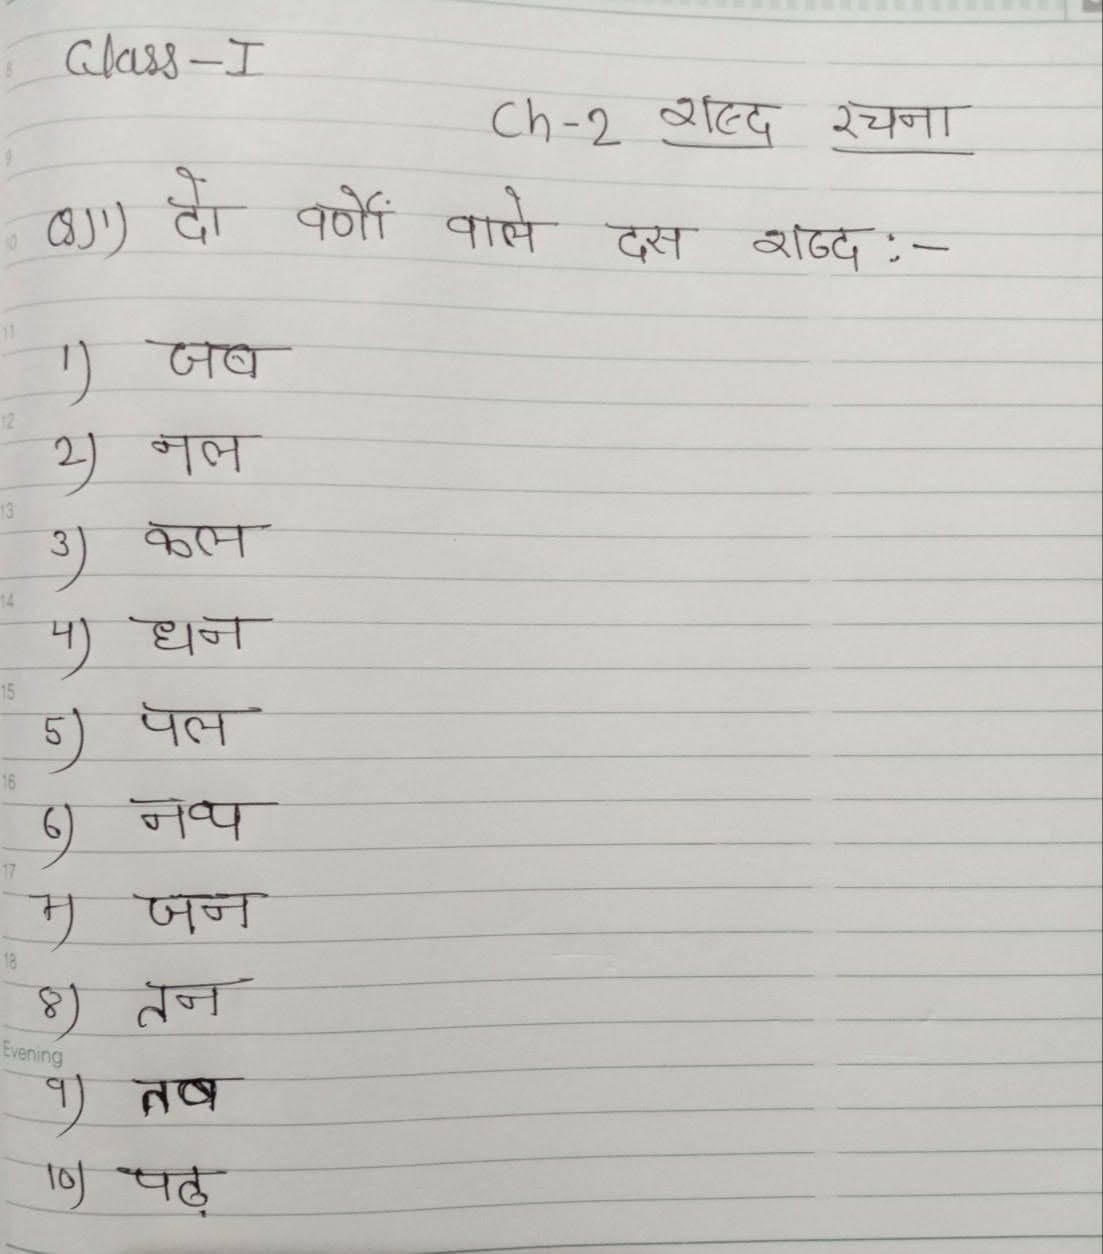 Class-I
Ch-2 शब्द रचना
Q1) दो वर्णों वाले दस शब्द :-
1) जब
2) नल
3) कल
4) धन
5) पल
6)
7) जन
8) तन
9) तब
10) पढ़
8
9
10
11
12
13
14
15
16
17
18
Evening